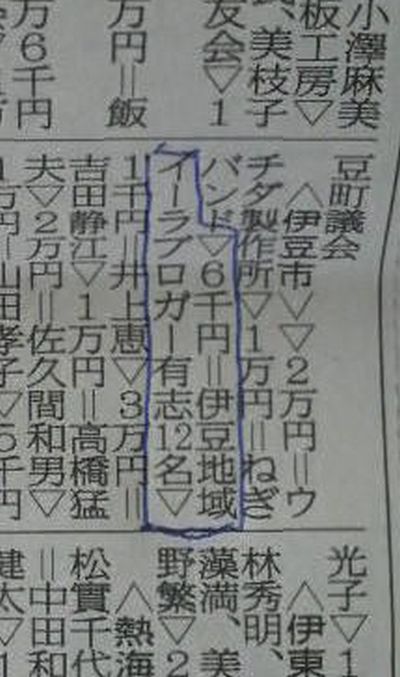 小澤麻美
板工房▽
、美枝子
友会▽1
万円＝飯
万6千円
豆町議会
〈伊豆市〉▽2万円＝ウ
チダ製作所▽1万円＝ねぎ
バンド▽6千円＝伊豆地域
イーラブロガー有志12名▽
1千円＝井上恵▽3万円＝
吉田静江▽1万円＝高橋猛
夫▽2万円＝佐久間和男▽
1万円＝山田孝子▽5千円
光子▽1
〈伊東
林秀明、
藻満、美
野繁▽2
〈熱海
松實千代
＝中田和
健太▽1